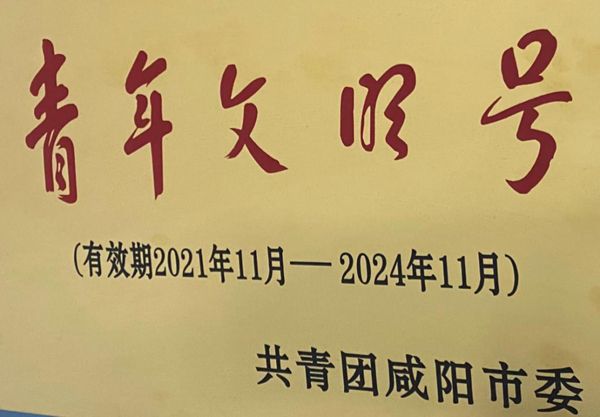 青年文明号
(有效期2021年11月—2024年11月)
共青团咸阳市委